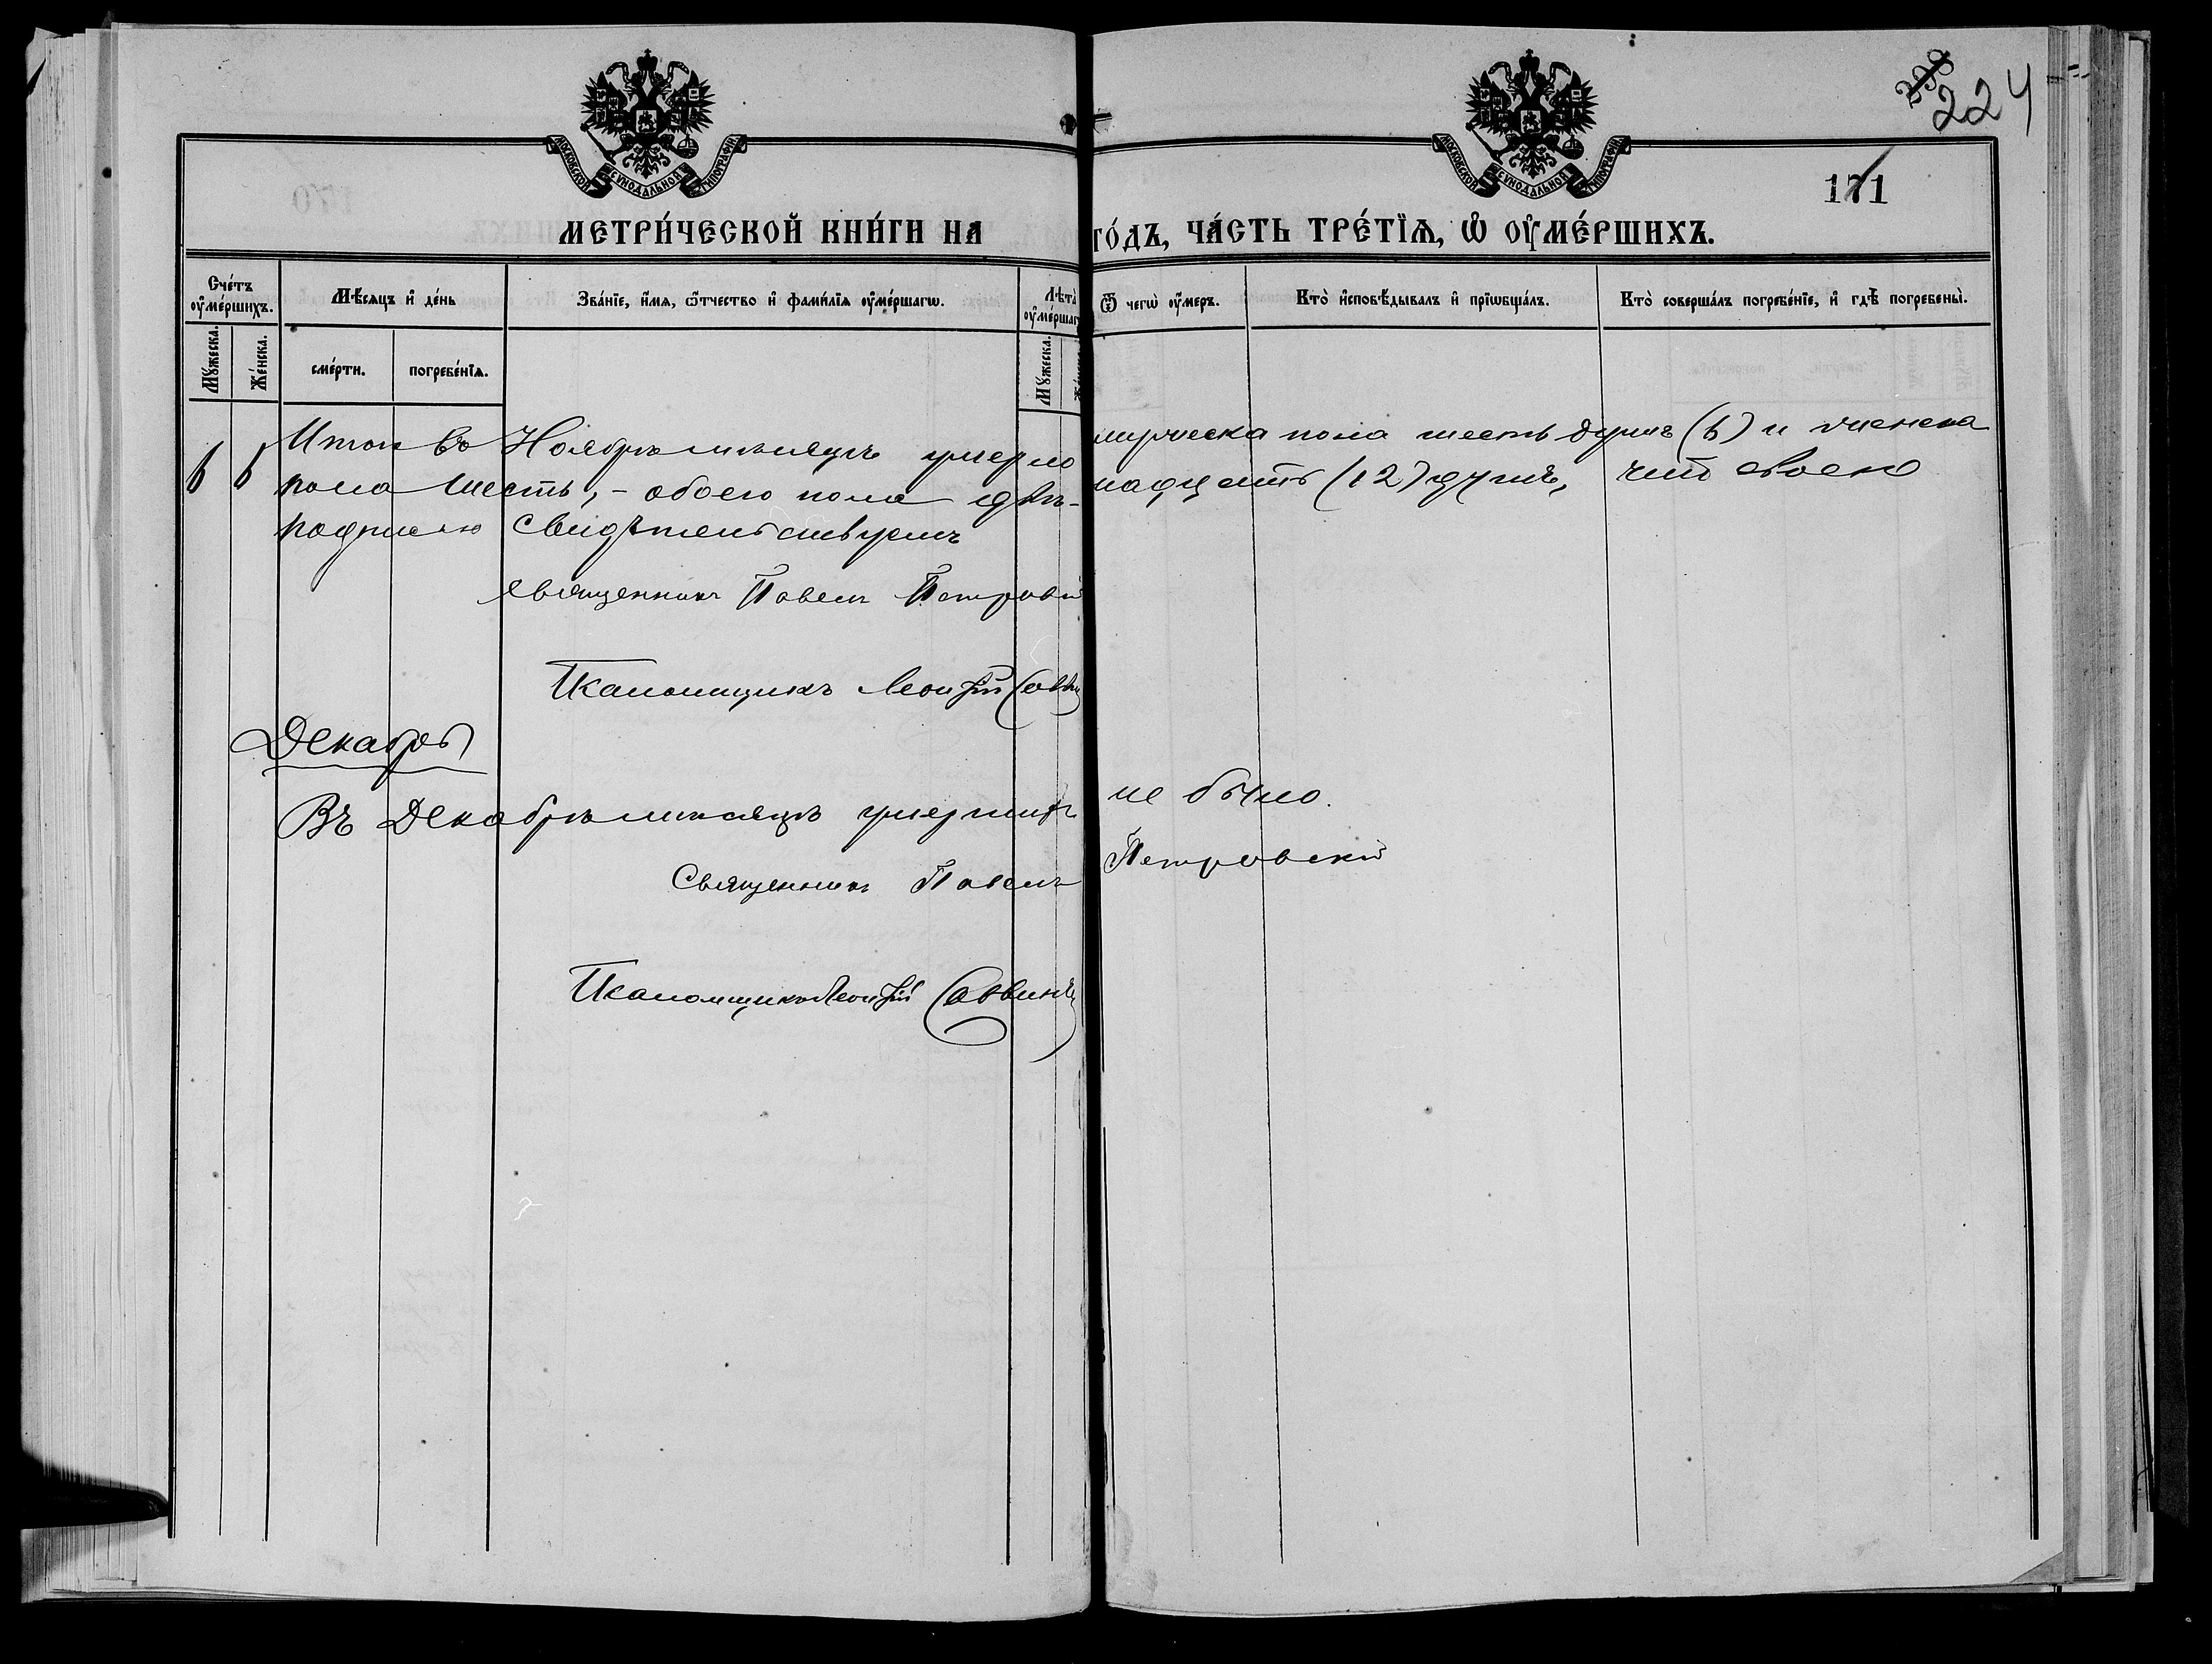 238
224
171
МОСКОВСКОЙ СѴНОДАЛЬНОЙ ТѴПОГРАФІИ
МОСКОВСКОЙ СѴНОДАЛЬНОЙ ТѴПОГРАФІИ
МЕТРИ́ЧЕСКОЙ КНИ́ГИ НА ГО́ДЪ, ЧА́СТЬ ТРЕ́ТЇѦ, Ѡ҆ ОУ҆МЕ́РШИХЪ.
Сче́тъ оу҆ме́ршихъ.
Мѣ́сяцъ и҆ де́нь
Зва́нїе, и҆́мя, ѻ҆́тчество и҆ фами́лїя оу҆ме́ршагѡ.
Лѣ́та оу҆ме́ршаг
Ѿ чегѡ̀ оу҆́меръ.
Кто̀ и҆сповѣ́дывалъ и҆ прїѡбща́лъ.
Кто̀ соверша́лъ погребе́нїе, и҆ гдѣ̀ погребены̀.
Му́жеска.
Же́нска.
сме́рти.
погребе́нїѧ.
Му́жеска.
6 6 Итого въ Ноябрѣ мѣсяцѣ умерло мужеска пола шесть душъ (6) и женска
пола шесть, - обоего пола двѣ- надцать (12) душъ, чтò своею
подписью свидѣтельствуемъ
священникъ Павелъ Петровскій
Псаломщикъ Леонтій Саввинъ
Декабрь
Въ Декабрѣ мѣсяцѣ умершихъ не было.
Священникъ Павелъ Петровскій
Псаломщикъ Леонтій Саввинъ